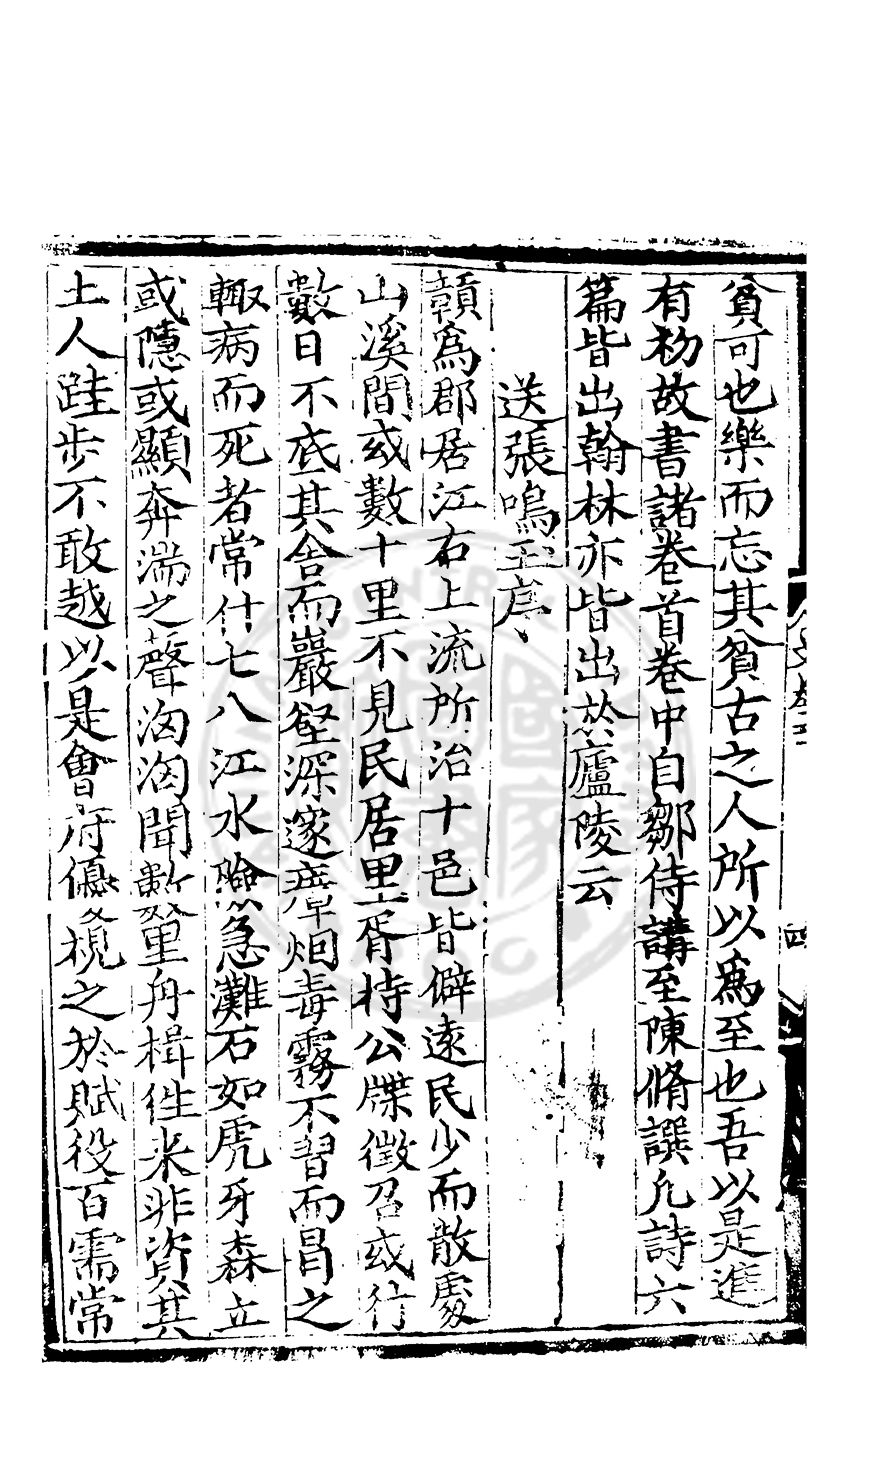 貧可也樂而忘其貧古之人所以為至也吾以是進
有初故書諸卷首卷中自鄒侍講至陳脩譔凡詩六
篇皆出翰林亦皆出於廬陵云
送張鳴玉序
贑為郡居江右上流所治十邑皆僻遠民少而散處
山溪間或數十里不見民居里胥持公牒徵召或行
數日不底其舍而巖壑深邃瘴烟毒霧不習而冒之
輙病而死者常什七八江水險急灘石如虎牙森立
或隱或顯奔湍之聲洶洶聞數里舟楫徃来非資其
土人跬步不敢越以是會府優視之於賦役百需常
四